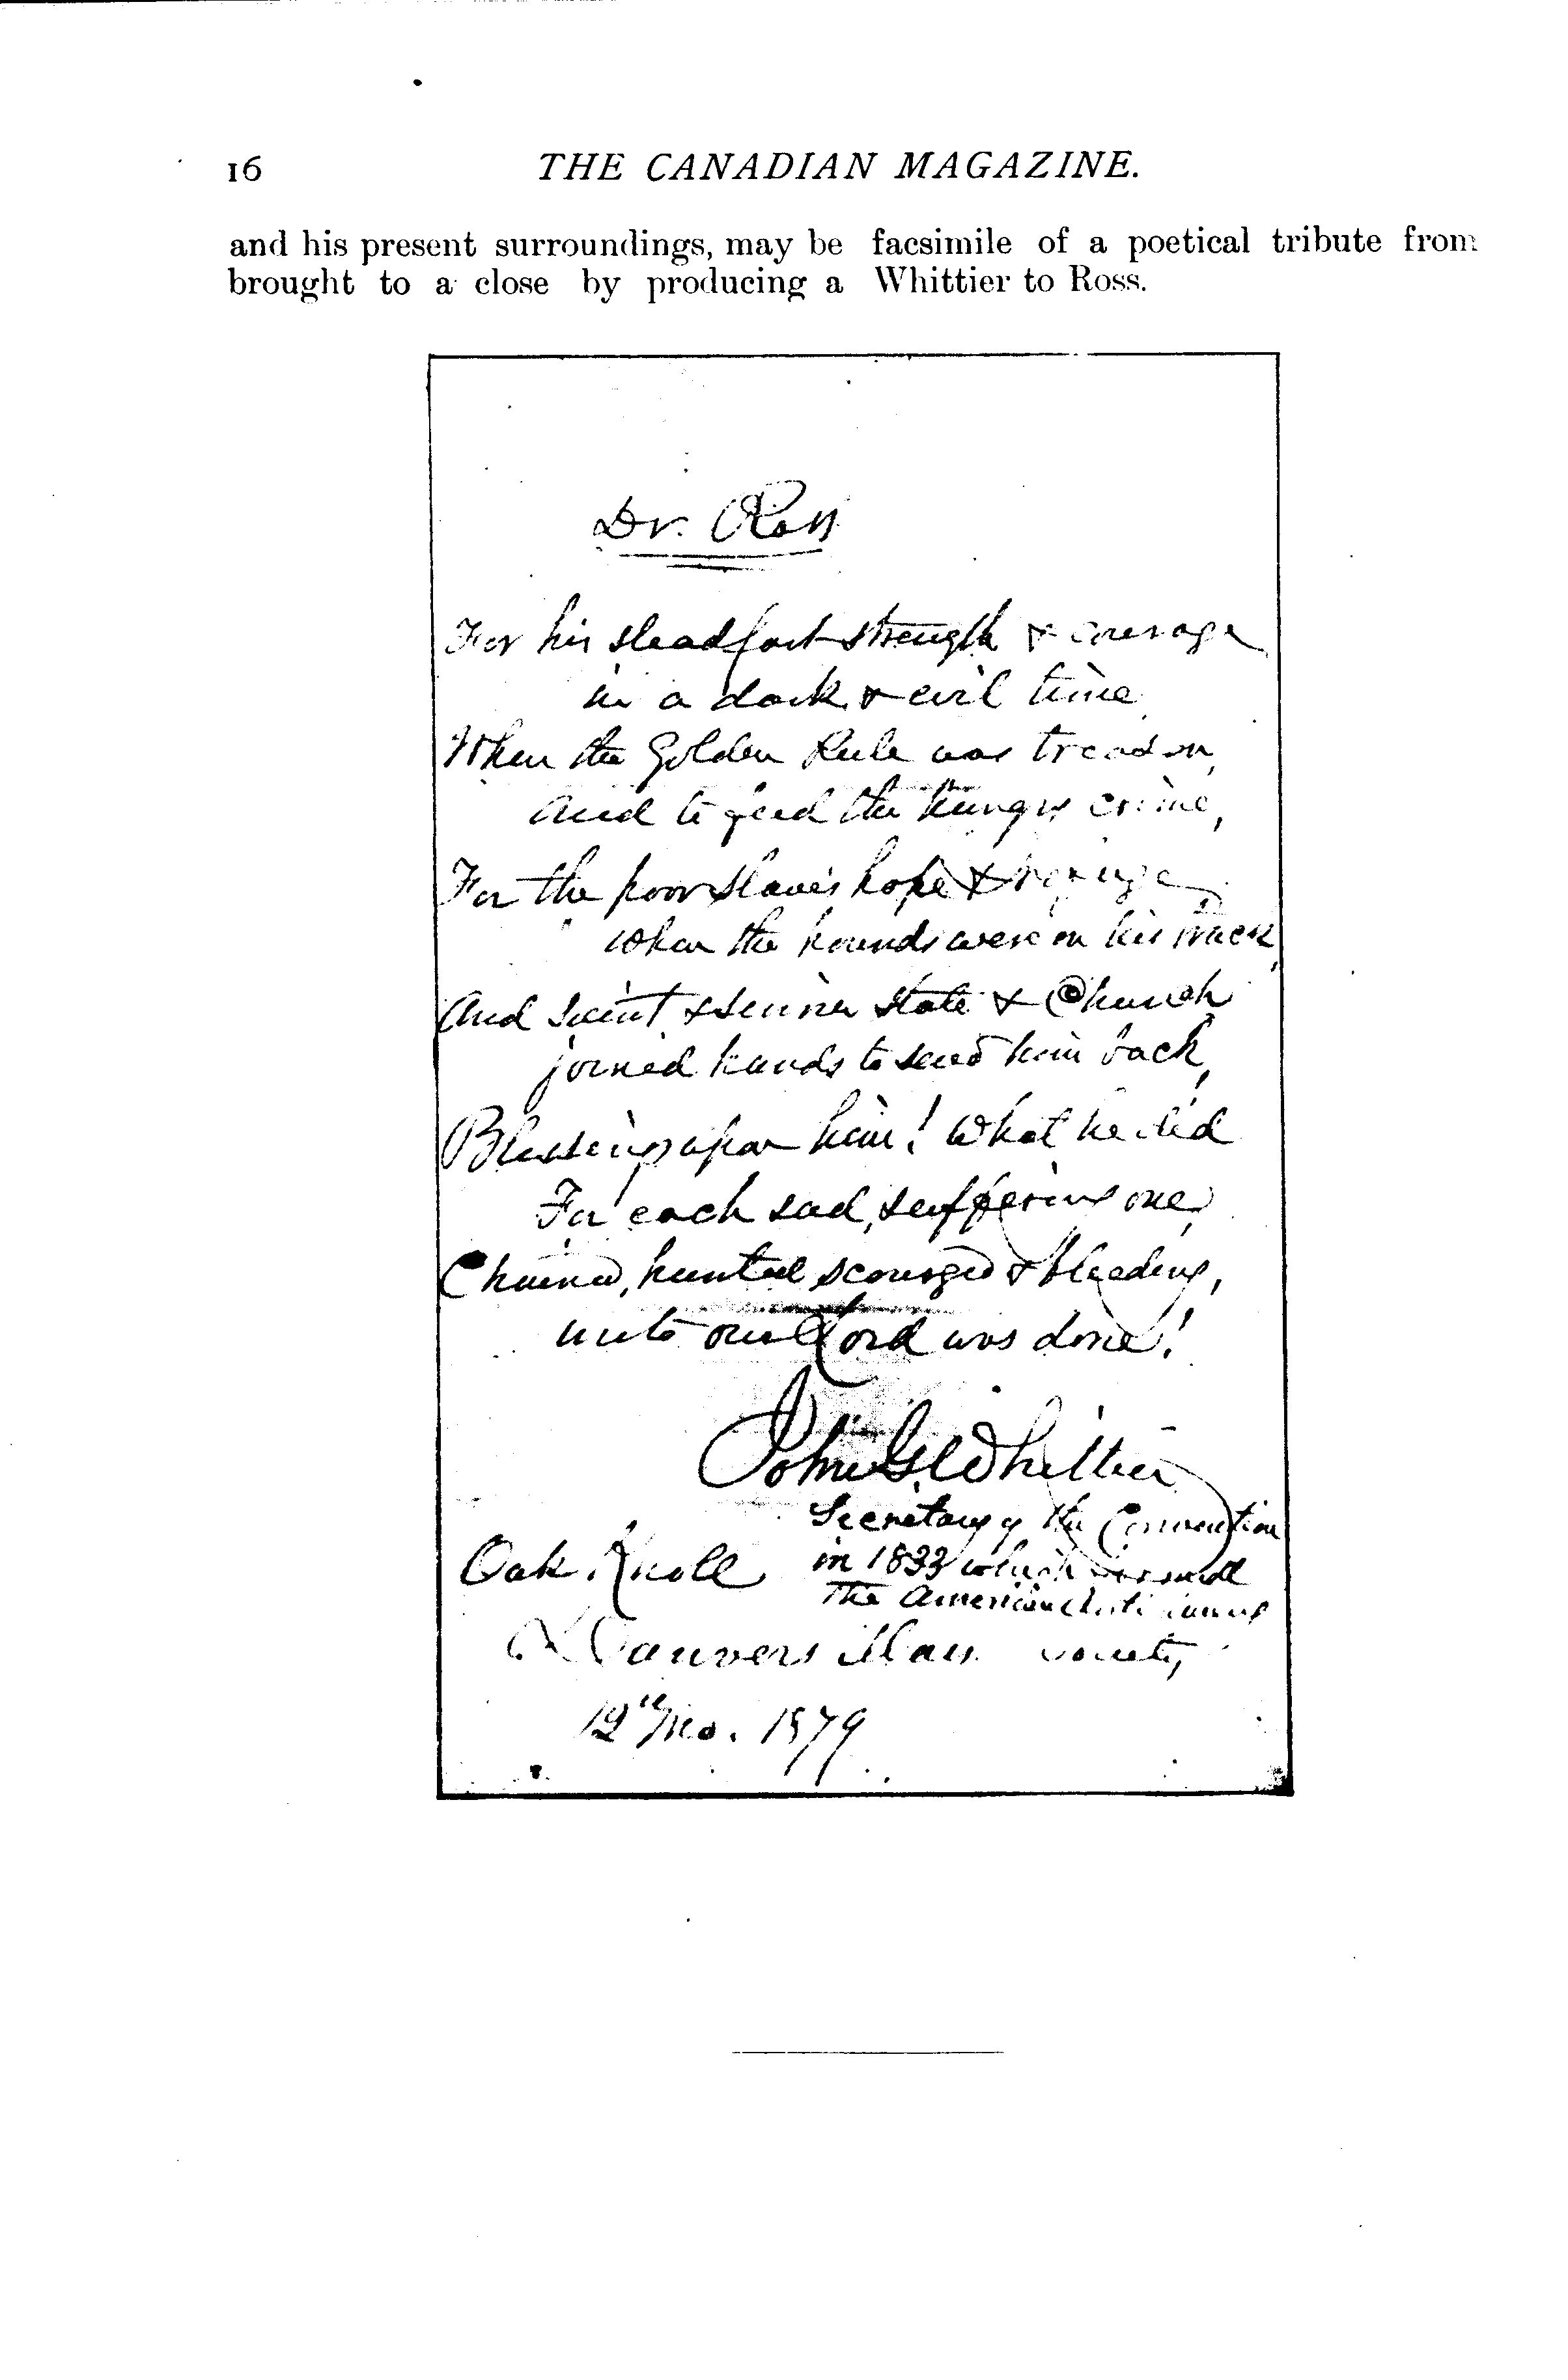 16 THE CANADIAN MAGAZINE.
and his present surroundings, may be
brought to a close by producing a
facsimile of a poetical tribute from
Whittier to Ross.
Dr. Ross
For his steadfast strength & courage
in a dark & evil time
When the Golden Rule was treason,
And to feed the hungry crime,
For the poor slave's hope & refuge
when the hounds were on his track,
And saint & sinner state & Church
joined hands to send him back,
Blessings upon him! What he did
For each sad, suffering one,
Chained, hunted scourged & bleeding,
unto our Lord was done!
John G. Whittier
Secretary of the Convention
in 1833 which formed
the American Anti Slavery
Society
Oak Knoll
Danvers Mass.
12th Mo. 1879